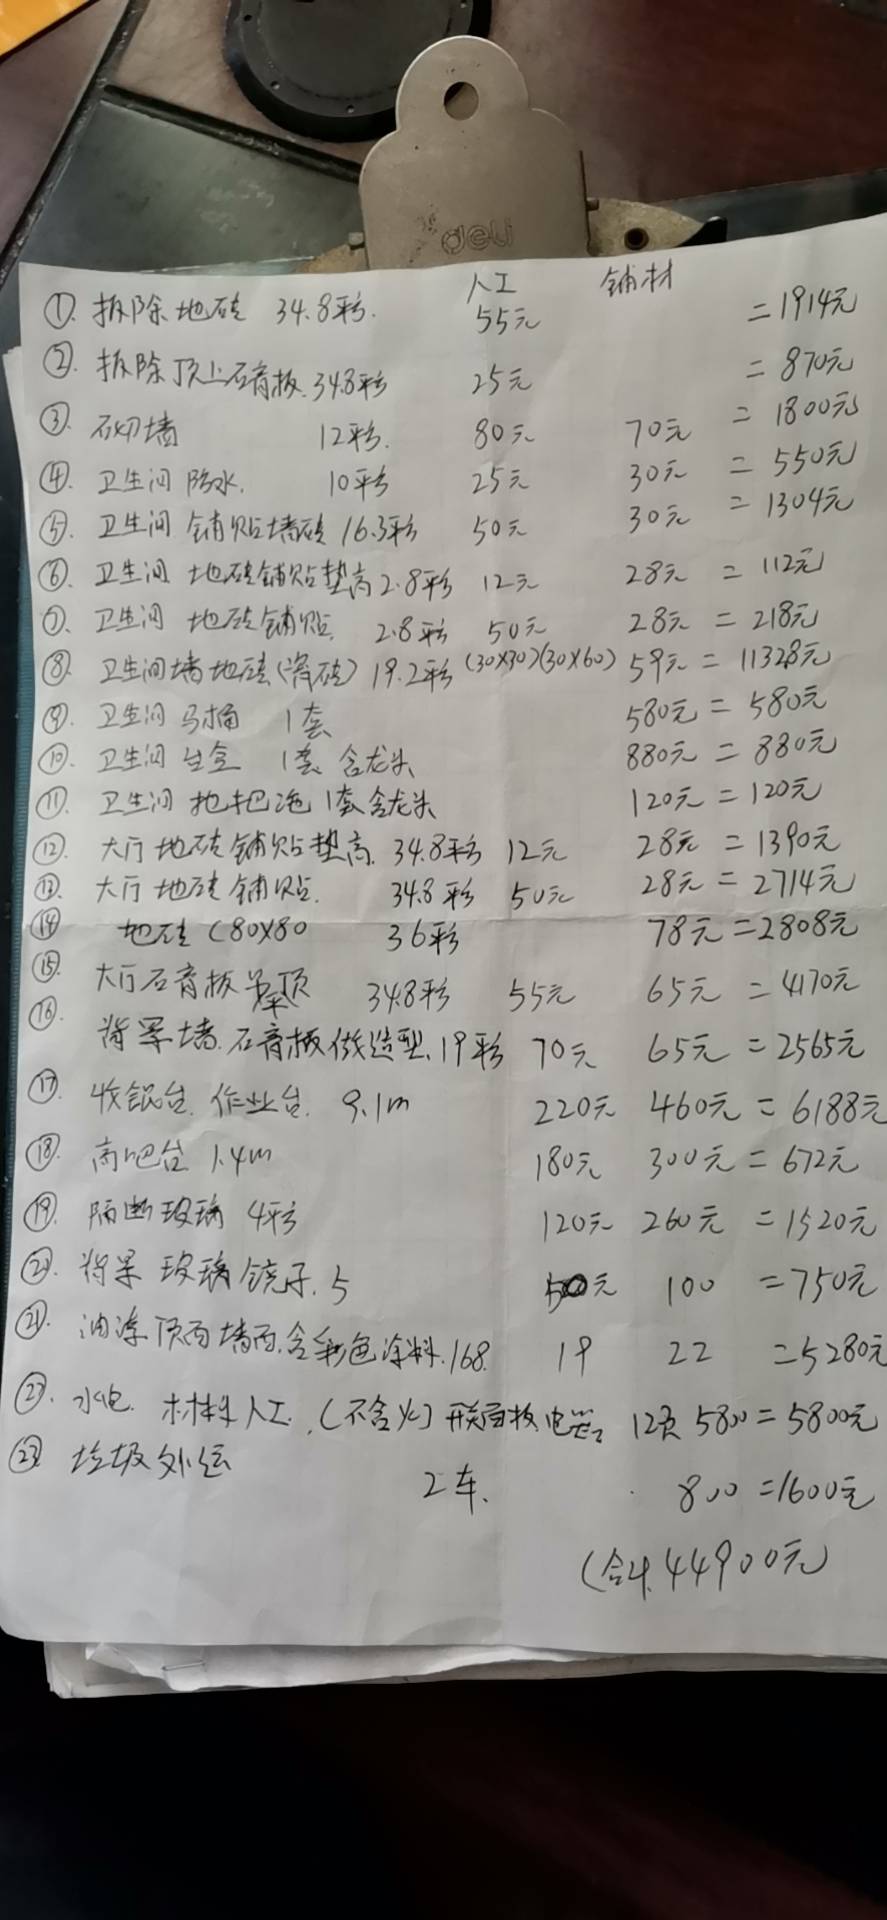 deli
人工 铺材
① 拆除地砖 34.8平方. 55元 =1914元
② 拆除顶上石膏板.34.8平方 25元 =870元
③ 石切墙 12平方. 80元 70元 =1800元
④ 卫生间防水. 10平方 25元 30元 =550元
⑤ 卫生间铺贴墙砖 16.3平方 50元 30元 =1304元
⑥ 卫生间 地砖铺贴垫高2.8平方 12元 28元 =112元
⑦ 卫生间 地砖铺贴. 2.8平方 50元 28元 =218元
⑧ 卫生间墙地砖(瓷砖) 19.2平方 (30×30)(30×60) 59元 =11328元
⑨ 卫生间马桶 1套 580元 =580元
⑩ 卫生间 1套 含龙头 880元 =880元
⑪ 卫生间 拖把池 1套含龙头 120元 =120元
⑫ 大厅地砖铺贴垫高. 34.8平方 12元 28元 =1390元
⑬ 大厅地砖铺贴. 34.8平方 50元 28元 =2714元
⑭ 地砖(80×80 36平方 78元 =2808元
⑮ 大厅石膏板吊顶 34.8平方 55元 65元 =4170元
⑯ 背景墙.石膏板做造型.19平方 70元 65元 =2565元
⑰ 收银台.作业台. 9.1m 220元 460元 =6188元
⑱ 高吧台 1.4m 180元 300元 =672元
⑲ 隔断玻璃 4平方 120元 260元 =1520元
⑳. 背景玻璃镜子.5 50元 100 =750元
㉑. 油漆顶面墙面.含彩色涂料.168. 19 22 =5280元
㉒. 水电. 材料人工.(不含火)开关面板电器 5800=5800元
㉓ 垃圾外运 2车. 800 =1600元
(合计.44900元)